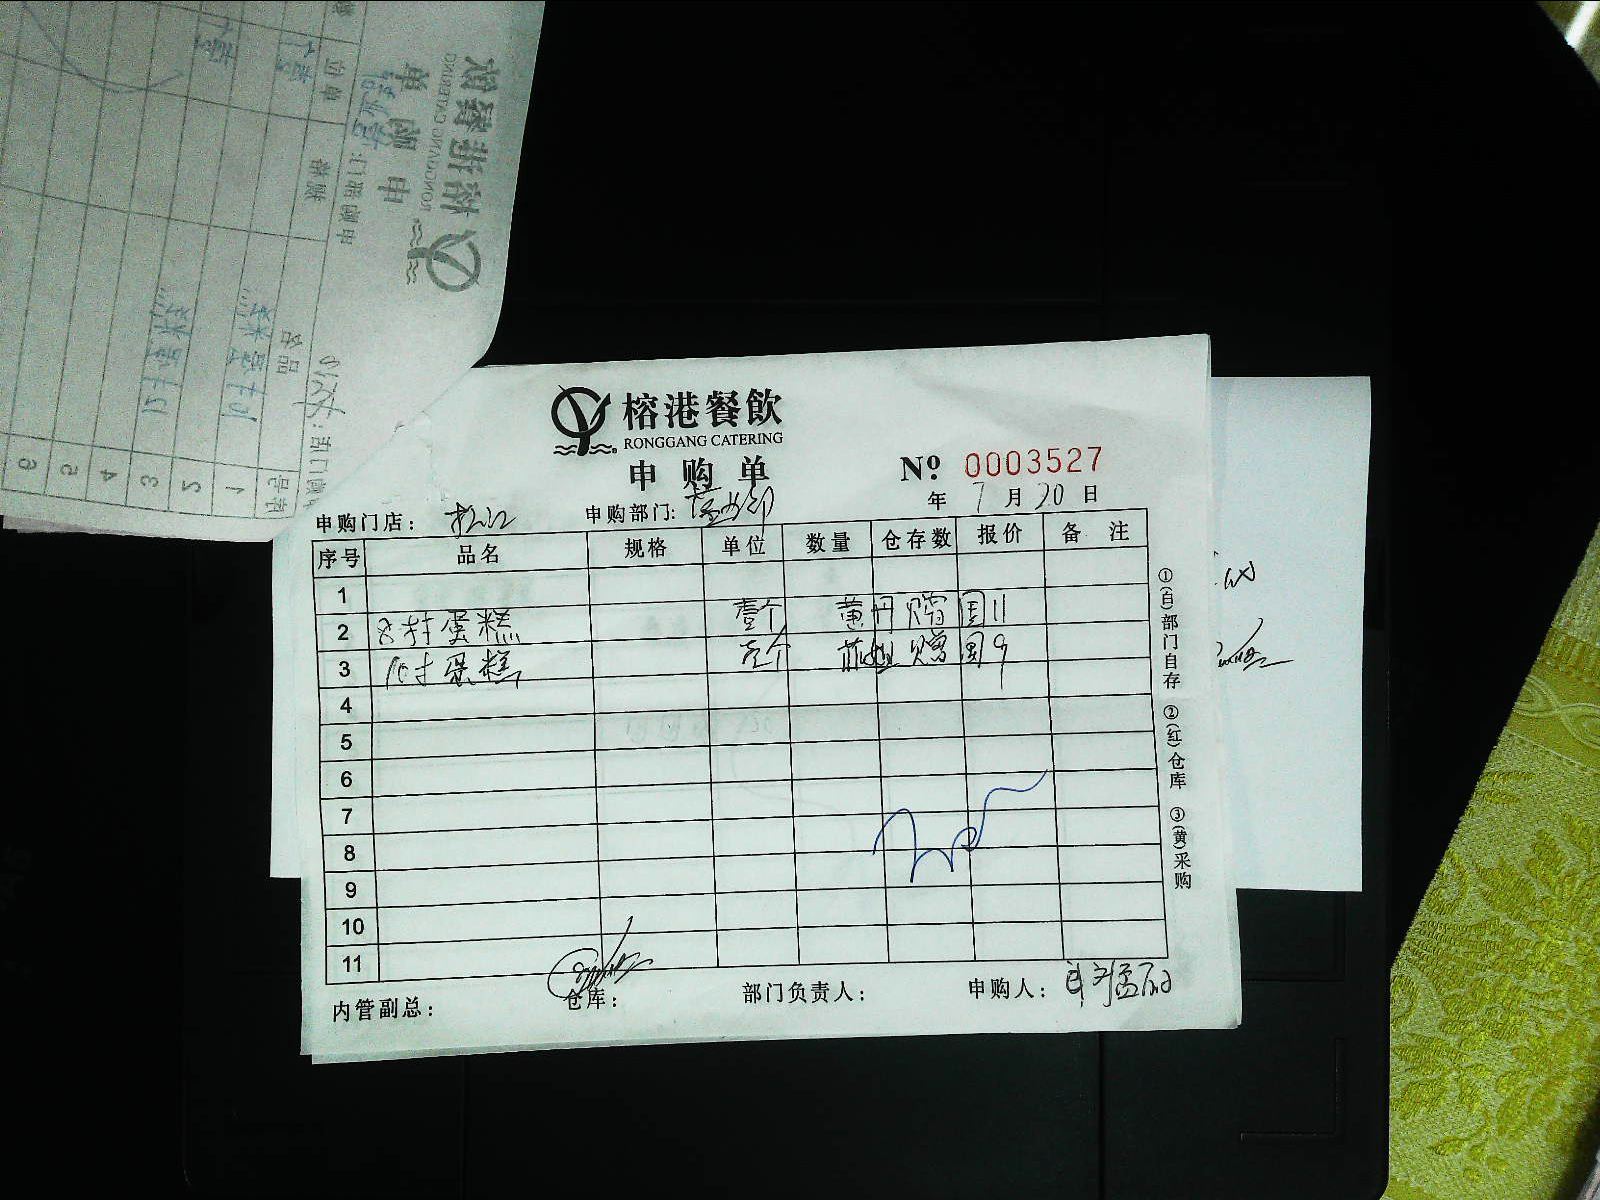 榕港餐飲
RONGGANG CATERING
申购单
№ 0003527
年 7 月 20 日
申购门店： 松江 申购部门: 营业部
序号 品名 规格 单位 数量 仓存数 报价 备注
1
2 8寸蛋糕 壹个 黄丹 赠 国11
3 10寸蛋糕 壹个 赠 国9
4
5
6
7
8
9
10
11
内管副总： 仓库： 部门负责人： 申购人：
①(白)部门自存 ②(红)仓库 ③(黄)采购
榕港餐飲
RONGGANG CATERING
申购单
申购部门:
序号 品名 规格 单位
1 10寸蛋糕
2
3 12寸蛋糕
4
5
6